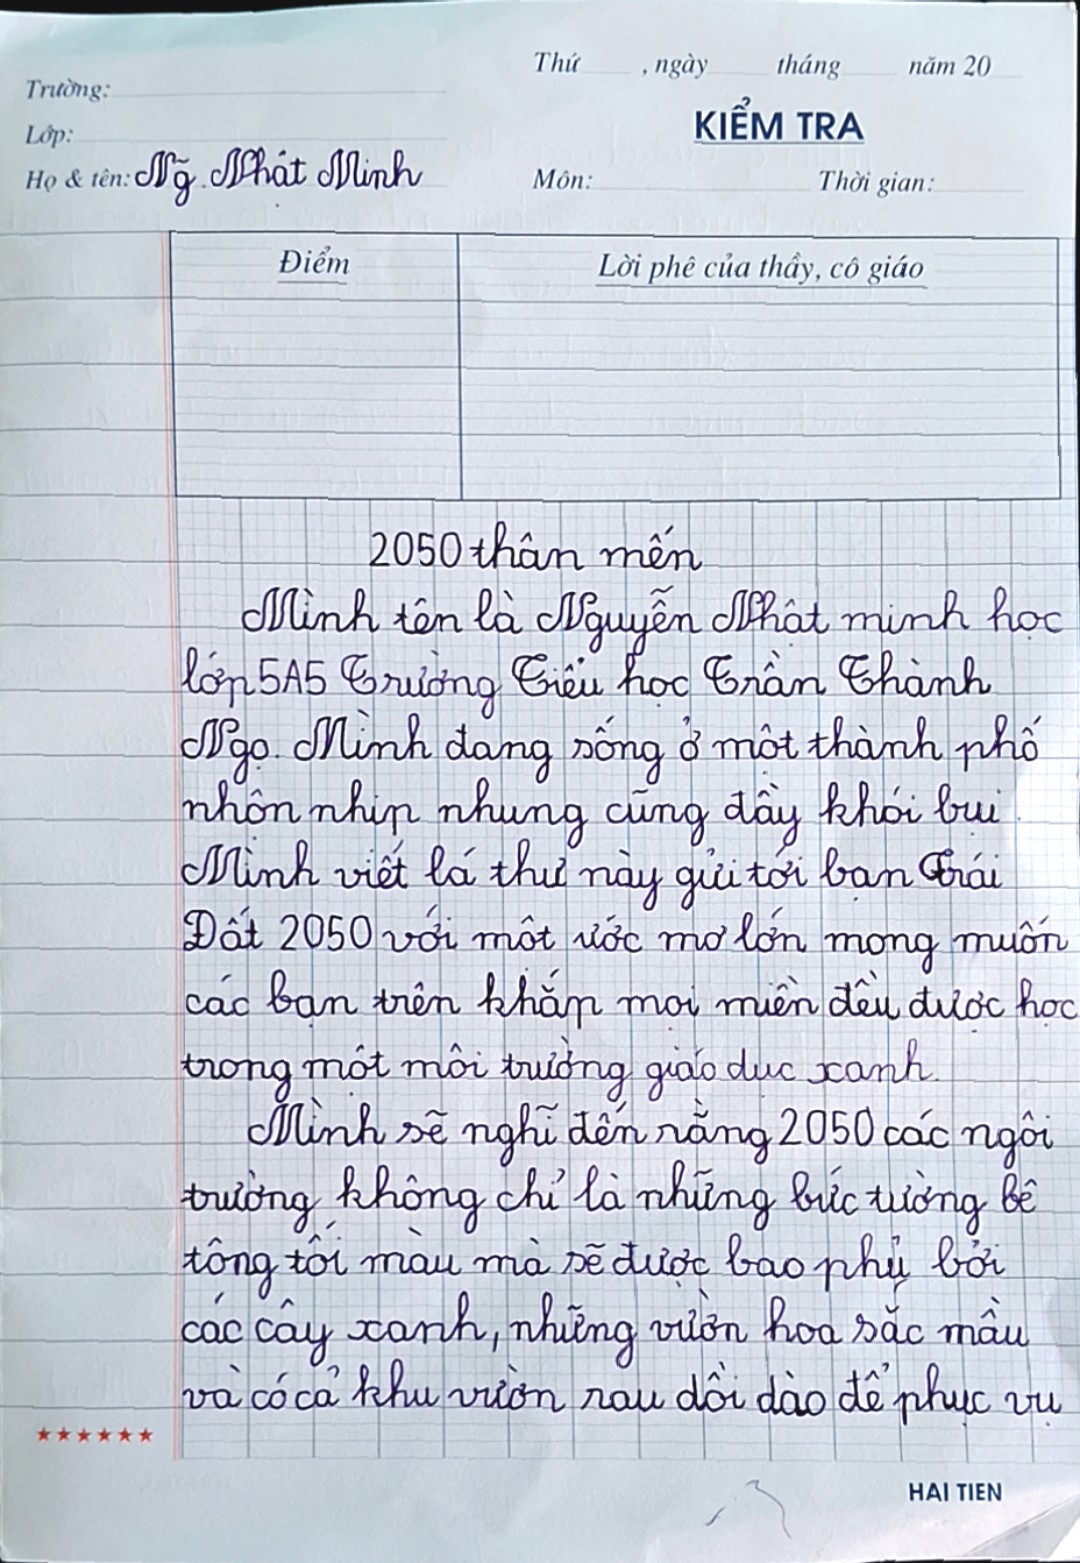 Thứ , ngày tháng năm 20
Trường:
Lớp:
KIỂM TRA
Họ & tên: Ng̃. Nhật Minh
Môn: Thời gian:
Điểm
Lời phê của thầy, cô giáo
2050 thân mến
Mình tên là Nguyễn Nhật minh học
lớp 5A5 Trường Tiểu học Trần Thành
Ngọ. Mình đang sống ở một thành phố
nhộn nhịp nhưng cũng đầy khói bụi.
Mình viết lá thư này gửi tới bạn Trái
Đất 2050 với một ước mơ lớn mong muốn
các bạn trên khắp mọi miền đều được học
trong một môi trường giáo dục xanh.
Mình sẽ nghĩ đến rằng 2050 các ngôi
trường không chỉ là những bức tường bê
tông tối màu mà sẽ được bao phủ bởi
các cây xanh, những vườn hoa sắc mầu
và có cả khu vườn rau dồi dào để phục vụ
★★★★★★
HAI TIEN